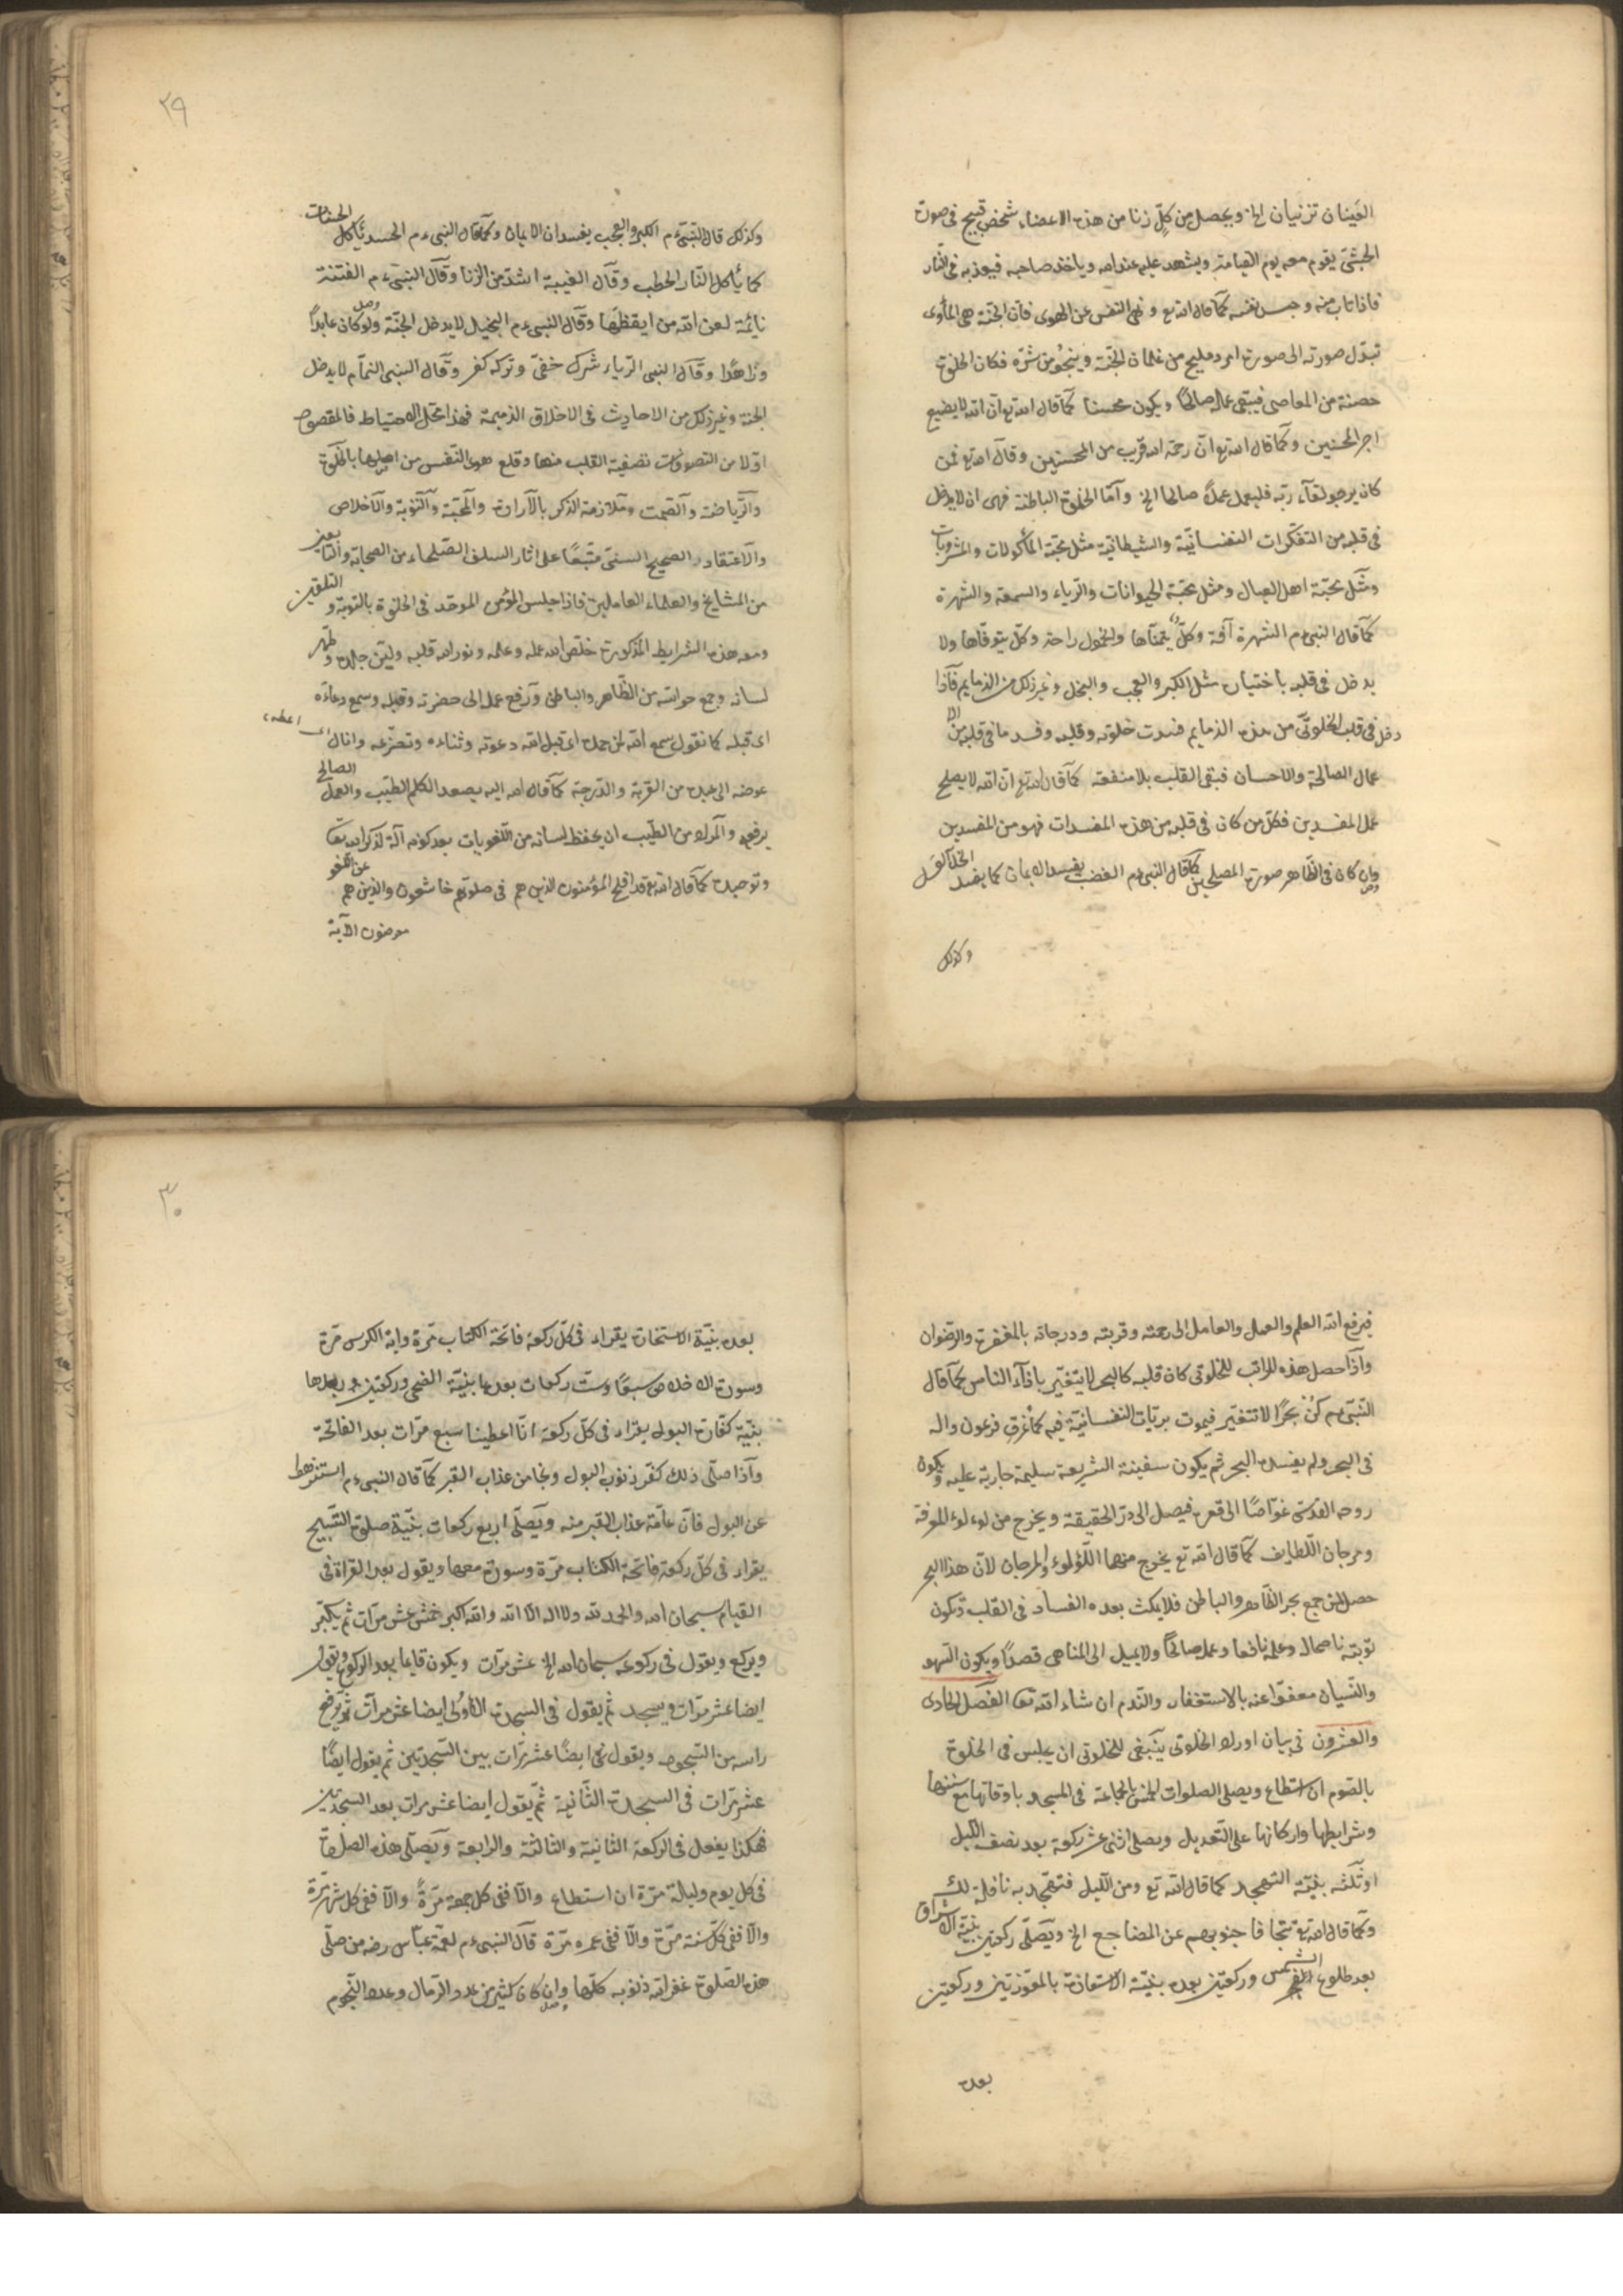 العينان تزنيان الخ ويحصل من كلّ زنا من هذه الاعضاء شخص قبيح فى صورة
الحبشىّ يقوم معه يوم القيامة ويشهد عليه عند الله وياخذ صاحبه فيعذبه فى النّار
فاذا تاب منه وحبس نفسه كما قال الله تع ونهى النفس عن الهوى فانّ الجنّة هى المأوى
تبدّل صورته الى صورة امرد مليح من غلمان الجنّة وينجو من شرّه فكان الخلوة
حصنة من المعاصى فيبقى عمله صالحًا ويكون محسنا كما قال الله تع انّ الله لا يضيع
اجر المحسنين وكما قال الله تع انّ رحمة الله قريب من المحسنين وقال الله تع فمن
كان يرجو لقآء ربّه فليعمل عملاً صالحا الخ وآمّا الخلوة الباطنة فهى ان لا يدخل
فى قلبه من التفكّرات النفسانيّة والشيطانيّة مثل محبّة المأكولات والمشروبات
ومثل محبّة اهل العيال ومثل محبّة الحيوانات والرّياء والسمعة والشهرة
كما قال النبىءم الشهرة آفة وكلّ يتمنّاها والخمول راحة وكلّ يتوقّاها ولا
يدخل فى قلبه باختياره مثل الكبر والعجب والبخل وغير ذلك من الذمايم فآذا
دخل فى قلب الخلوتىّ من هذه الذمايم فسدت خلوته وقلبه وفسد ما فى قلبه من الا
عمال الصالحة والاحسان فبقى القلب بلا منفعة كما قال الله تع انّ الله لا يصلح
عمل المفسدين فكلّ من كان فى قلبه من هذه المفسدات فهو من المفسدين
وان كان فى الظّاهر صورة المصلحين كما قال النبىءم الغضب يفسد الايمان كما يفسد الخلّ العسل
وكذلك
٢٩
وكذلك قال النّبىّءم الكبر والعجب يفسدان الايمان وكما قال النبىءم الحسد يأكل الحسنات
كما يأكل النّار الحطب وقآل الغيبة اشدّ من الزنا وقآل النبىءم الفتنة
نائمة لعن الله من ايقظها وقآل النبىءم البخيل لا يدخل الجنّة ولو كان عابداً
وزاهداً وقآل النبى الرّياء شرك خفىّ وتركه كفر وقآل النبى النمّام لا يدخل
الجنة وغير ذلك من الاحاديث فى الاخلاق الذميمة فهذا محلّ الاحتياط فالمقصود
اوّلا من التصوّف تصفية القلب منها وقلع هوى النّفس من اصلها بالخلوة
والرّياضة والصّمت وملازمة الذكر بالارادة والمحبّة والتّوبة والاخلاص
والاعتقاد الصحيح السنىّ متّبعًا على اثار السلف الصّلحاء من الصحابة والتّابعين
من المشايخ والعلماء العاملين فاذا جلس المؤمن الموحّد فى الخلوة بالتوبة والتلقين
ومعه هذه الشرايط المذكورة خلّص الله عمله وعلمه ونوّر الله قلبه وليّن جلده وطهّر
لسانه وجمع حواسّه من الظّاهر والباطن ورفع عمله الى حضرته وقبله وسمع دعاءه
اى قبله كما نقول سمع الله لمن حمده اى قبل الله دعوته وثناءه وتضرّعه وانال اى اعطى
عوضه الى عبده من القربة والدّرجة كما قال الله اليه يصعد الكلم الطّيّب والعمل الصالح
يرفعه والمراد من الطّيب ان يحفظ لسانه من اللّغويات بعد كونه آلة لذكر الله تعا
وتوحيده كما قال الله تع قد افلح المؤمنون الذين هم فى صلوتهم خاشعون والذين هم عن اللّغو
معرضون الآية
فيرفع الله العلم والعمل والعامل الى رحمته وقربته ودرجاته بالمغفرة والرّضوان
وآذا حصل هذه المراتب للخلوتى كان قلبه كالبحر لا يتغيّر باذآء الناس كما قال
النّبىءم كنْ بحرًا لا تتغيّر فيموت بريّات النفسانيّة فيه كما غرق فرعون واله
فى البحر ولم يفسد البحر ثم يكون سفينة الشريعة سليمة جارية عليه ويكون
روحه القدسىّ غوّاصًا الى قعره فيصل الى درّ الحقيقة ويخرج منه لؤلؤ المعرفة
ومرجان اللّطايف كما قال الله تع يخرج منهما اللّؤلوء والمرجان لانّ هذا البحر
حصل لمن جمع بحر الظّاهر والباطن فلا يمكث بعده الفساد فى القلب وتكون
توبته ناصحا له وعلمه نافعا وعمله صالحًا ولا يميل الى المناهى قصداً ويكون السّهو
والنّسيان معفوّا عنه بالاستغفار والنّدم ان شاء الله تعا الفصل الحادى
والعشرون فى بيان اوراد الخلوتى ينبغى للخلوتى ان يجلس فى الخلوة
بالصّوم ان استطاع ويصلى الصلوات الخمس بالجماعة فى المسجد باوقاتها مع سننها
وشرايطها واركانها على التّعديل ويصلى اثنى عشر ركعة بعد نصف اللّيل
او ثلثه بنيّة التهجد كما قال الله تع ومن اللّيل فتهجّد به نافلة لك
وكما قال الله تع تتجافا جنوبهم عن المضاجع الخ ويصلّى ركعتين بنيّة الاشراق
بعد طلوع الشمس وركعتين بعده بنيّة الاستعاذة بالمعوّذتين وركعتين
بعده
٣٠
بعده بنيّة الاستخارة يقراء فى كلّ ركعة فاتحة الكتاب مرّة واية الكرسى مرّة
وسورة الاخلاص سبعًا وست ركعات بعدها بنيّة الضحى وركعتين بعدها
بنيّة كفّارة البول يقراء فى كلّ ركعة انّا اعطينا سبع مرّات بعد الفاتحة
وآذا صلّى ذلك كفّر ذنوب البول ونجا من عذاب القبر كما قال النبىءم استنزهوا
عن البول فانّ عامّة عذاب القبر منه ويصلّى اربع ركعات بنيّة صلوة التّسبيح
يقراء فى كلّ ركعة فاتحة الكتاب مرّة وسورة معها ويقول بعد القراة فى
القيام سبحان الله والحمد لله ولا اله الا الله والله اكبر خمس عشر مرّات ثم يكبّر
ويركع ويقول فى ركوعه سبحان الله الخ عشر مرّات ويكون قايما بعد الركوع ويقول
ايضا عشر مرّات ويسجد ثم يقول فى السجدة الاولى ايضا عشر مرآت ثم يرفع
راسه من السّجود ويقول ايضًا عشر مرّات بين السّجدتين ثم يقول ايضًا
عشر مرّات فى السجدة الثّانية ثمّ يقول ايضا عشر مرات بعد السجدتين
فهكذا يفعل فى الركعة الثانية والثالثة والرابعة ويصلّى هذه الصلوة
فى كل يوم وليلة مرّة ان استطاع والّا ففى كل جمعة مرّةً والّا ففى كل شهر مرّة
والّا ففى كلّ سنة مرّة والّا ففى عمره مرّة قآل النبىءم لعمّه عبّاس رضه من صلّى
هذه الصّلوة غفر الله ذنوبه كلّها وان كان كثير من عدد الرّمال وعدد النّجوم